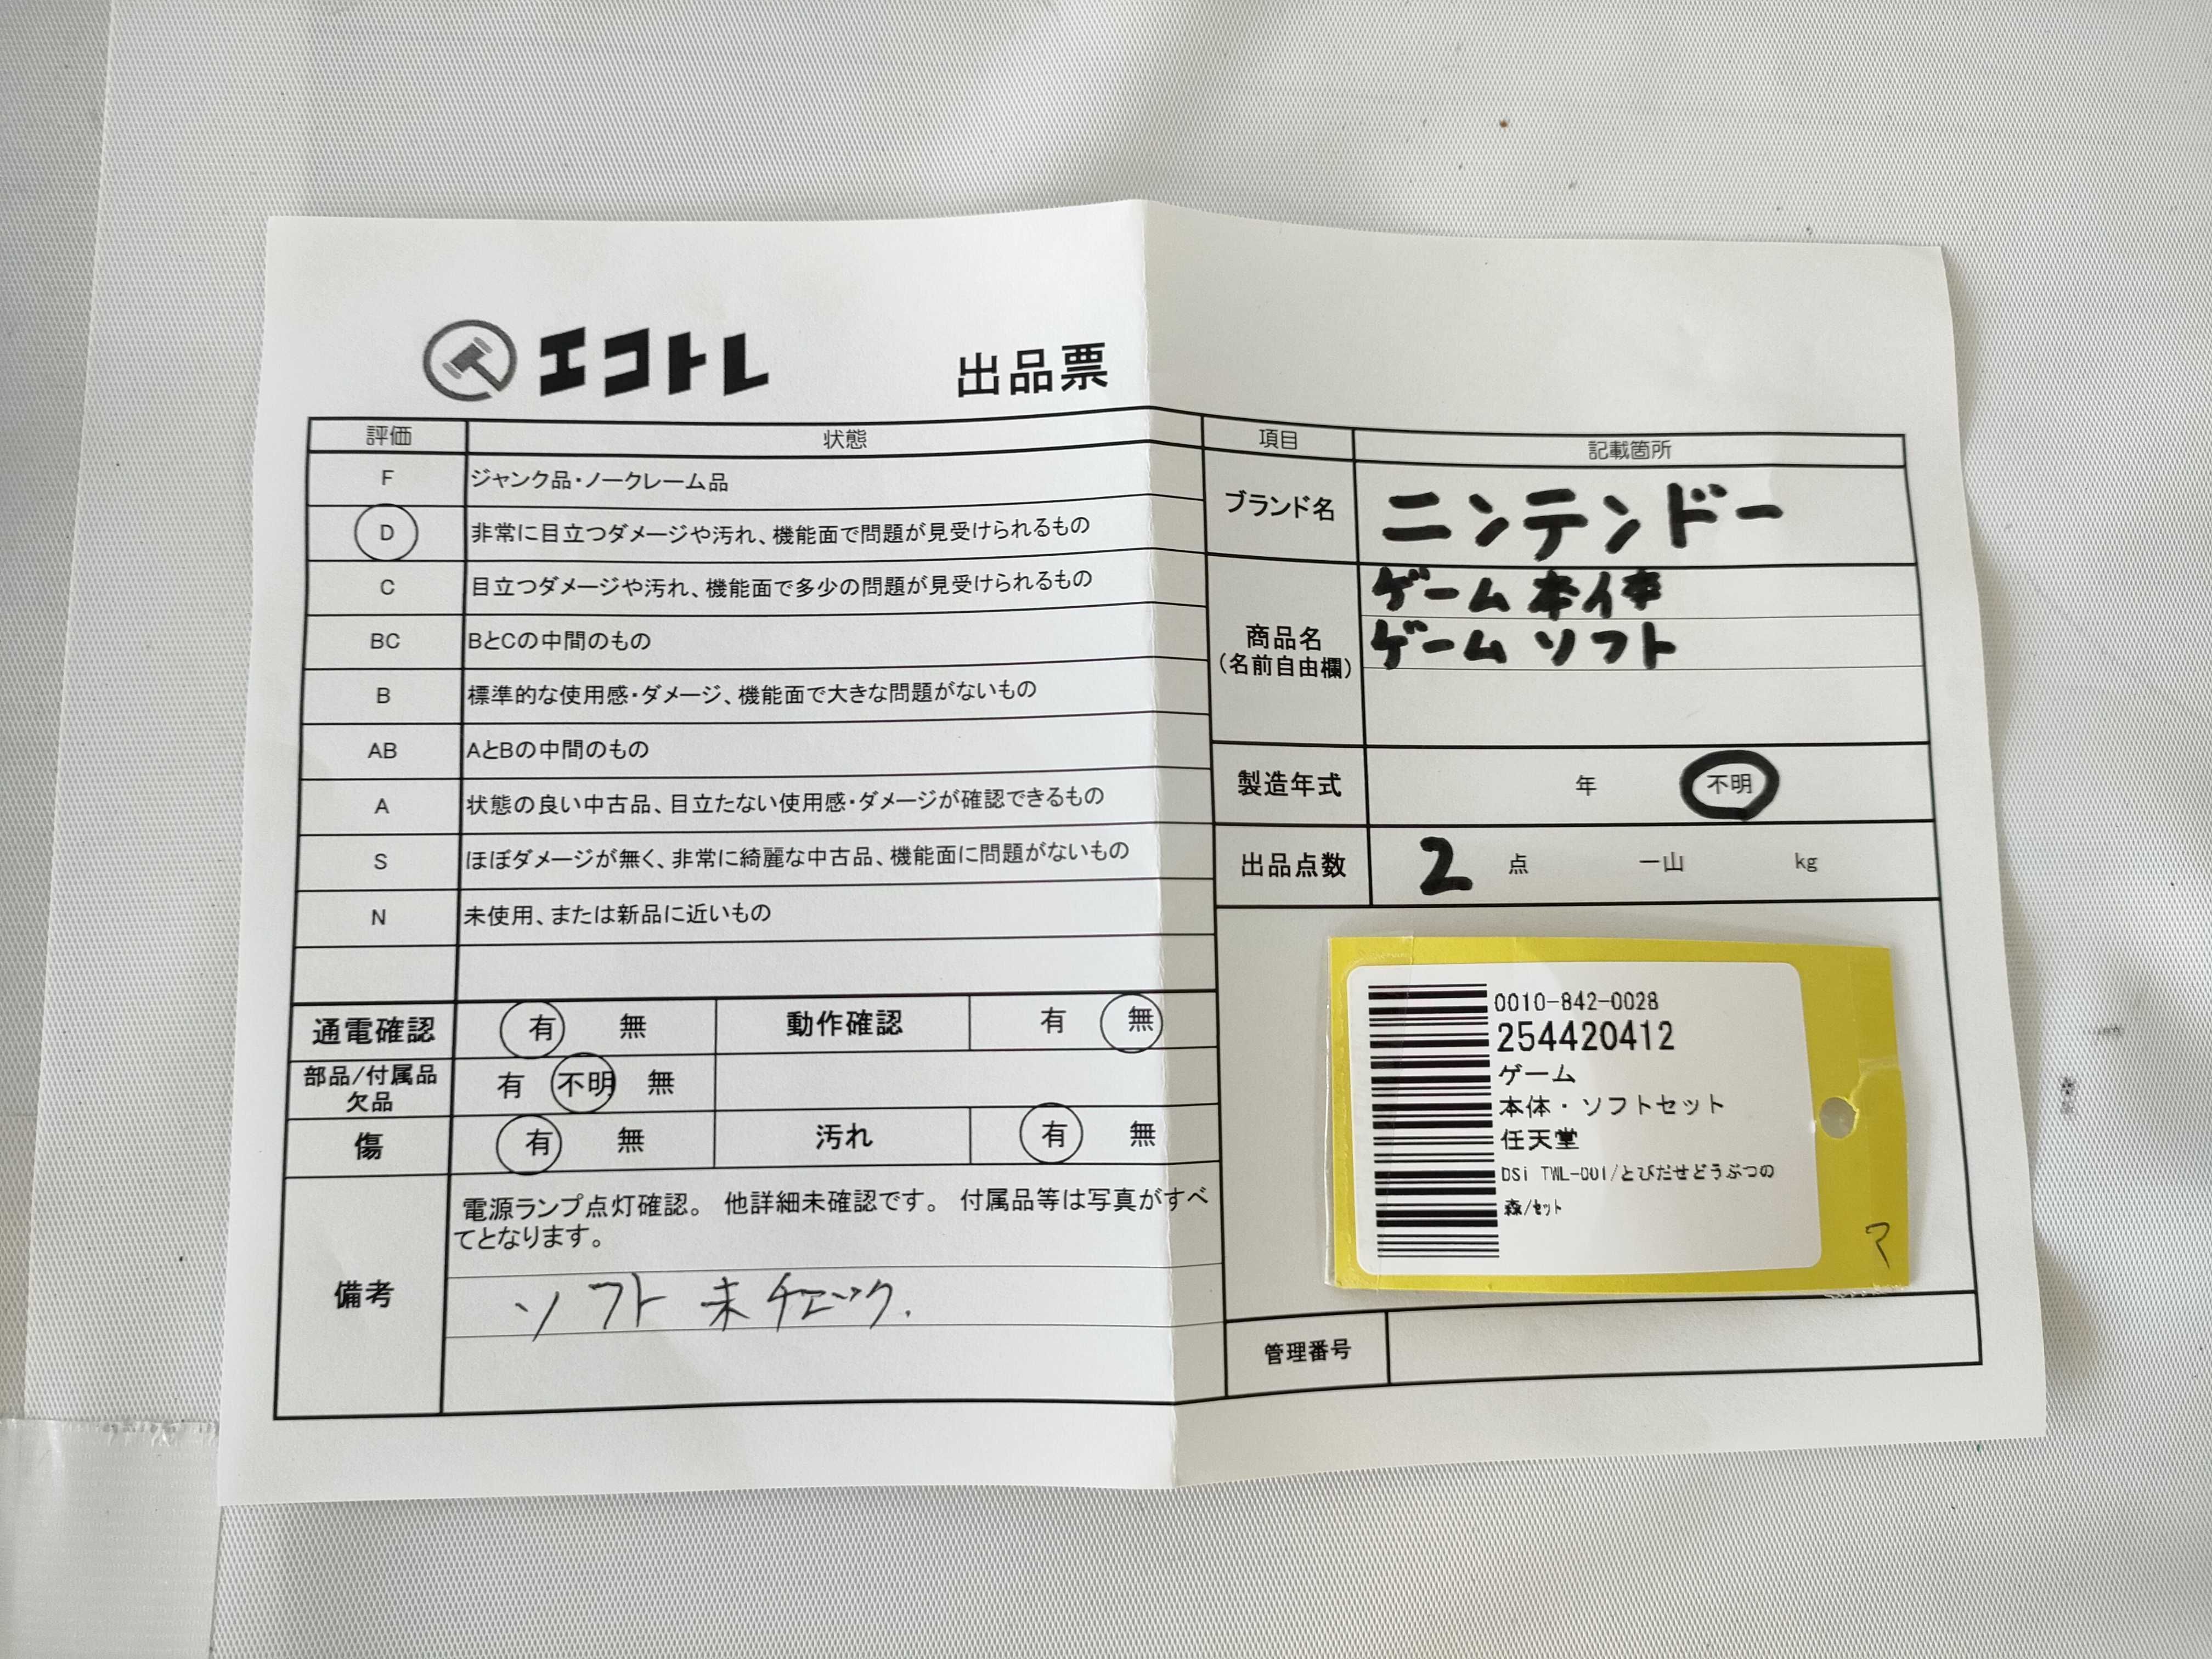 エコトレ 出品票
評価 状態
F ジャンク品・ノークレーム品
D 非常に目立つダメージや汚れ、機能面で問題が見受けられるもの
C 目立つダメージや汚れ、機能面で多少の問題が見受けられるもの
BC BとCの中間のもの
B 標準的な使用感・ダメージ、機能面で大きな問題がないもの
AB AとBの中間のもの
A 状態の良い中古品、目立たない使用感・ダメージが確認できるもの
S ほぼダメージが無く、非常に綺麗な中古品、機能面に問題がないもの
N 未使用、または新品に近いもの
通電確認 有 無 動作確認 有 無
部品/付属品
欠品
有 不明 無
傷 有 無 汚れ 有 無
備考
電源ランプ点灯確認。 他詳細未確認です。 付属品等は写真がすべ
てとなります。
ソフト 未チェック.
項目 記載箇所
ブランド名 ニンテンドー
商品名
(名前自由欄)
ゲーム 本体
ゲーム ソフト
製造年式 年 不明
出品点数 2 点 一山 kg
0010-842-0028
254420412
ゲーム
本体・ソフトセット
任天堂
DSi TWL-001/とびだせどうぶつの
森/セット
管理番号